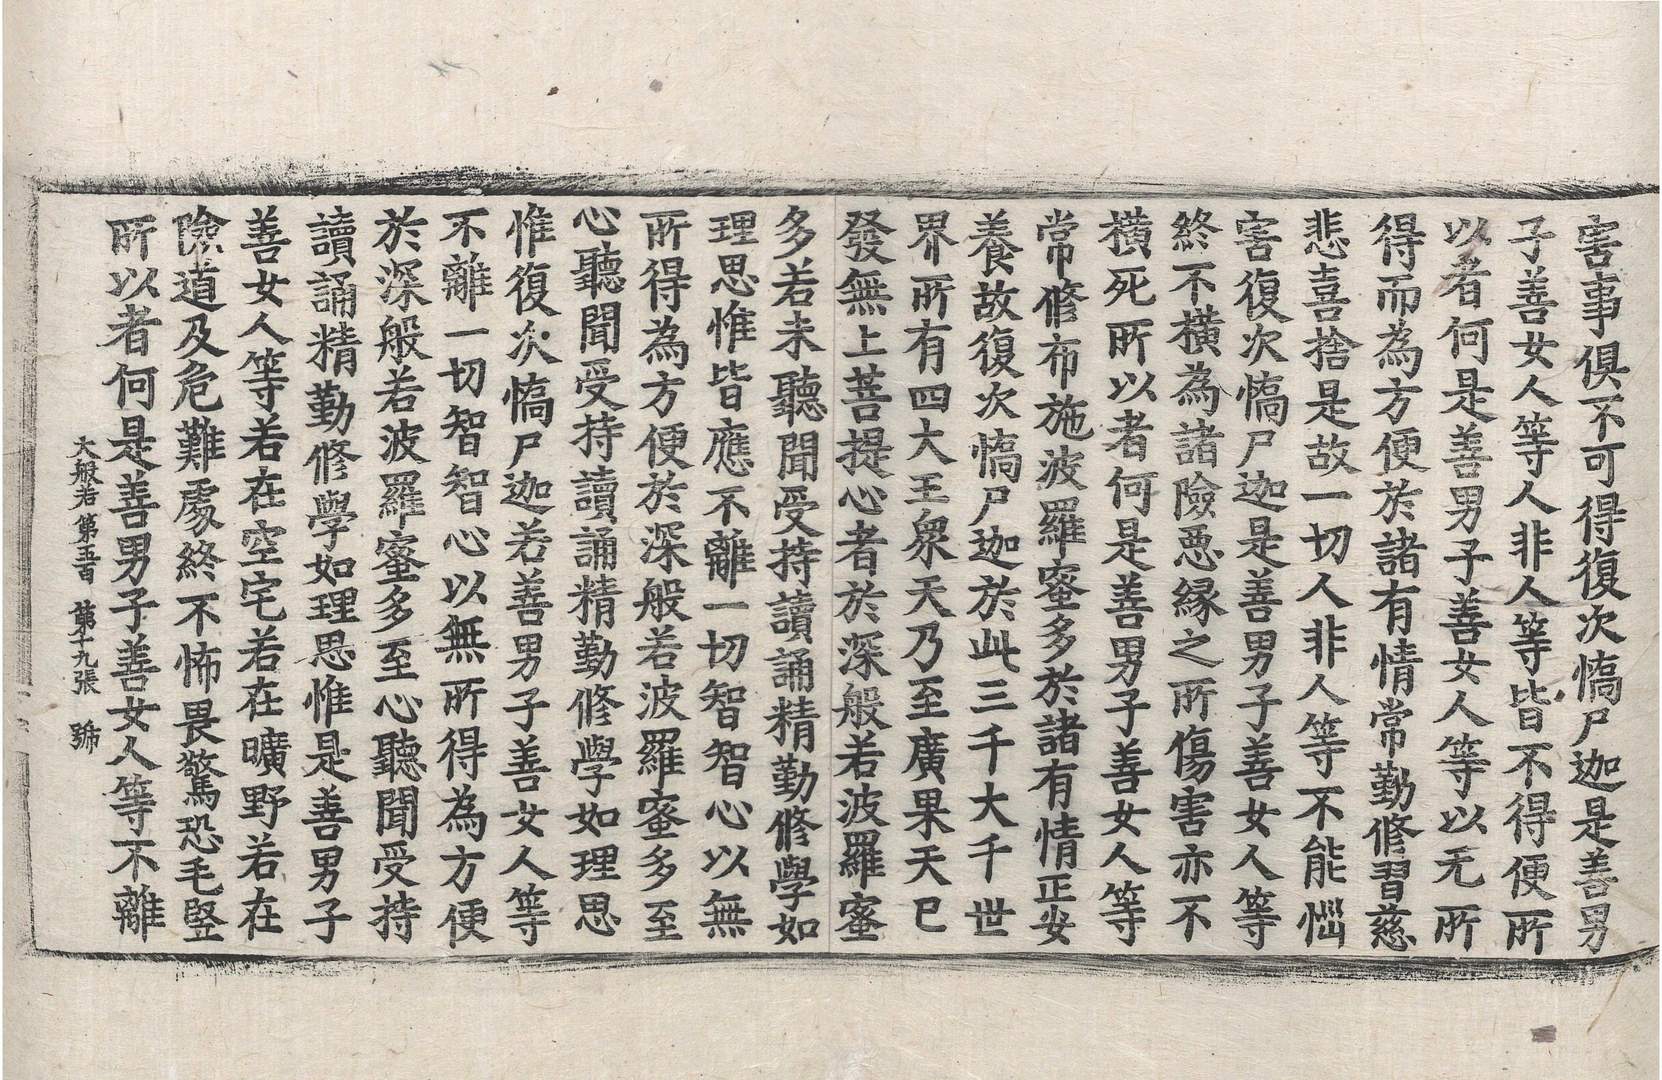 害事俱不可得復次憍尸迦是善男
子善女人等人非人等皆不得便所
以者何是善男子善女人等以无所
得而為方便於諸有情常勤修習慈
悲喜捨是故一切人非人等不能惱
害復次憍尸迦是善男子善女人等
終不橫為諸險惡緣之所傷害亦不
橫死所以者何是善男子善女人等
常修布施波羅蜜多於諸有情正安
養故復次憍尸迦於此三千大千世
界所有四大王衆天乃至廣果天已
發無上菩提心者於深般若波羅蜜
多若未聽聞受持讀誦精勤修學如
理思惟皆應不離一切智智心以無
所得為方便於深般若波羅蜜多至
心聽聞受持讀誦精勤修學如理思
惟復次憍尸迦若善男子善女人等
不離一切智智心以無所得為方便
於深般若波羅蜜多至心聽聞受持
讀誦精勤修學如理思惟是善男子
善女人等若在空宅若在曠野若在
險道及危難處終不怖畏驚恐毛竪
所以者何是善男子善女人等不離
大般若第五百 第十九張 號